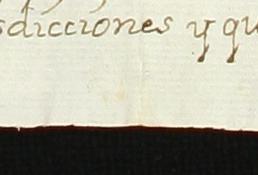 sdicciones y qu